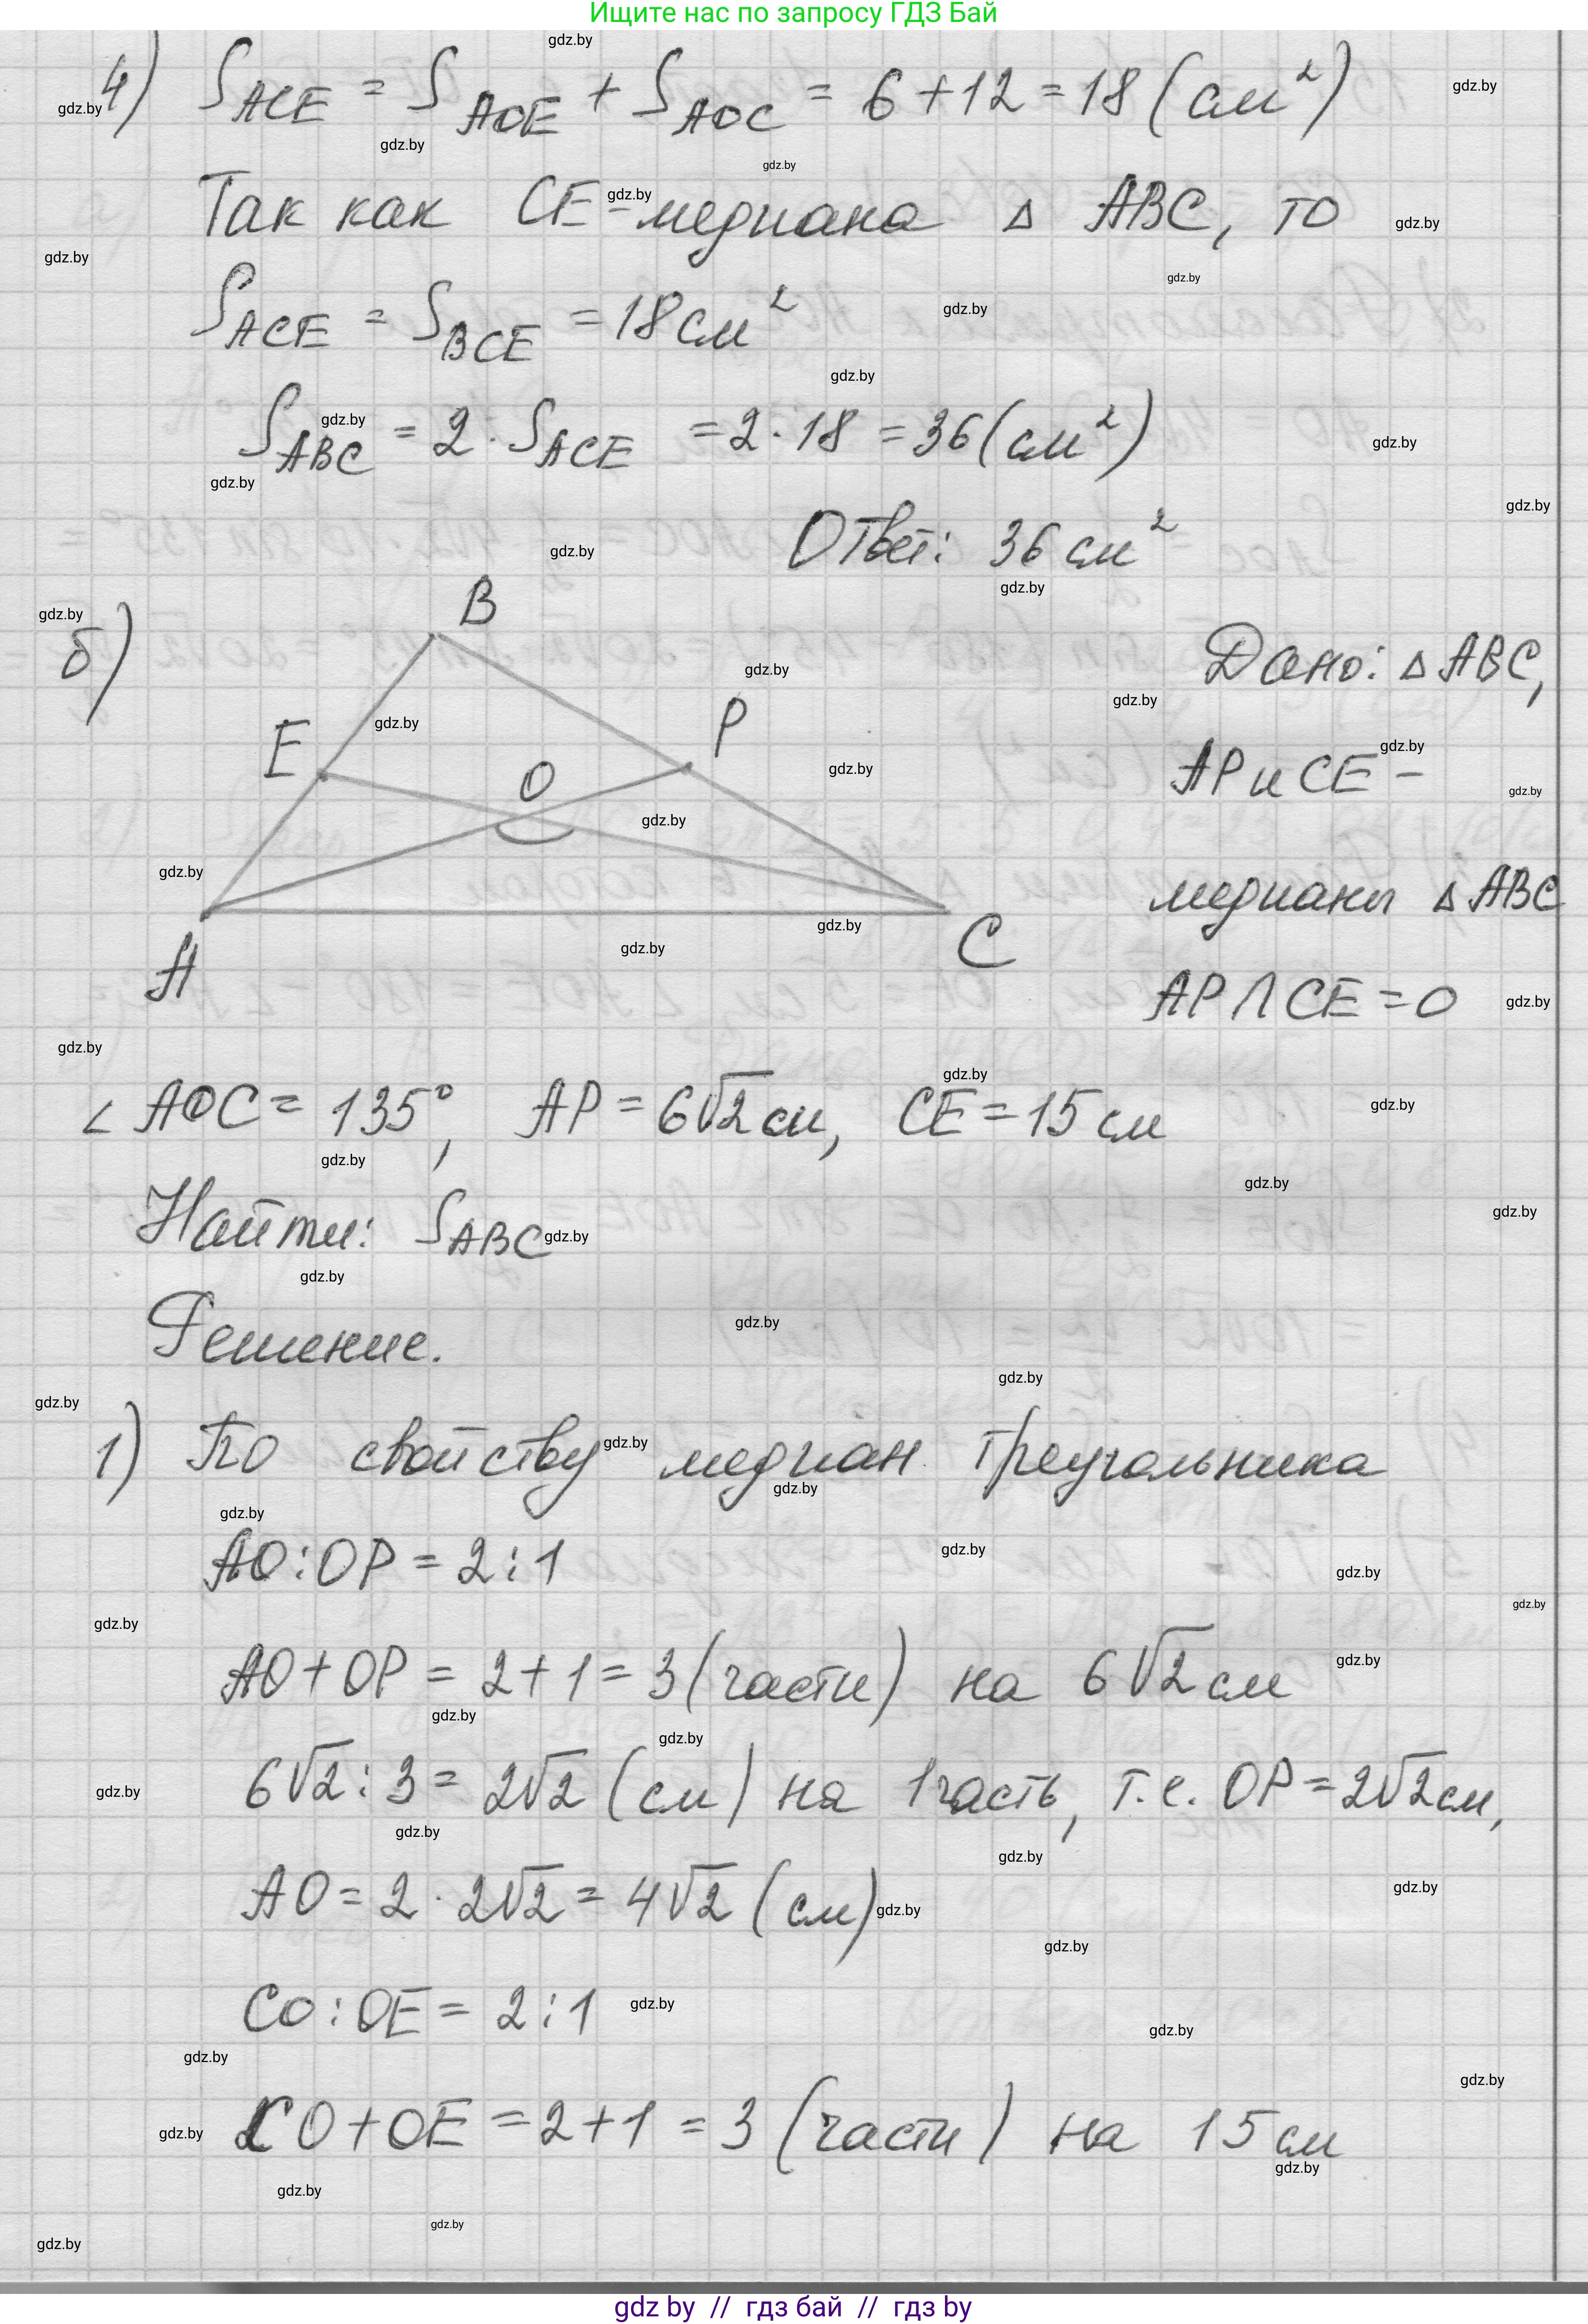 Ищите нас по запросу ГДЗ Бай
4) S ACE = S AOE + S AOC = 6 + 12 = 18 (см²)
Так как CE - медиана △ ABC, то
S ACE = S BCE = 18 см²
S ABC = 2 · S ACE = 2 · 18 = 36 (см²)
Ответ: 36 см²
б)
B
E
O
P
A
C
Дано: △ ABC,
AP и CE –
медианы △ ABC
AP ∩ CE = O
∠ AOC = 135°, AP = 6√2 см, CE = 15 см
Найти: S ABC
Решение.
1) По свойству медиан треугольника
AO : OP = 2 : 1
AO + OP = 2 + 1 = 3 (части) на 6√2 см
6√2 : 3 = 2√2 (см) на 1 часть, т.е. OP = 2√2 см,
AO = 2 · 2√2 = 4√2 (см)
CO : OE = 2 : 1
CO + OE = 2 + 1 = 3 (части) на 15 см
gdz by // гдз бай // гдз by